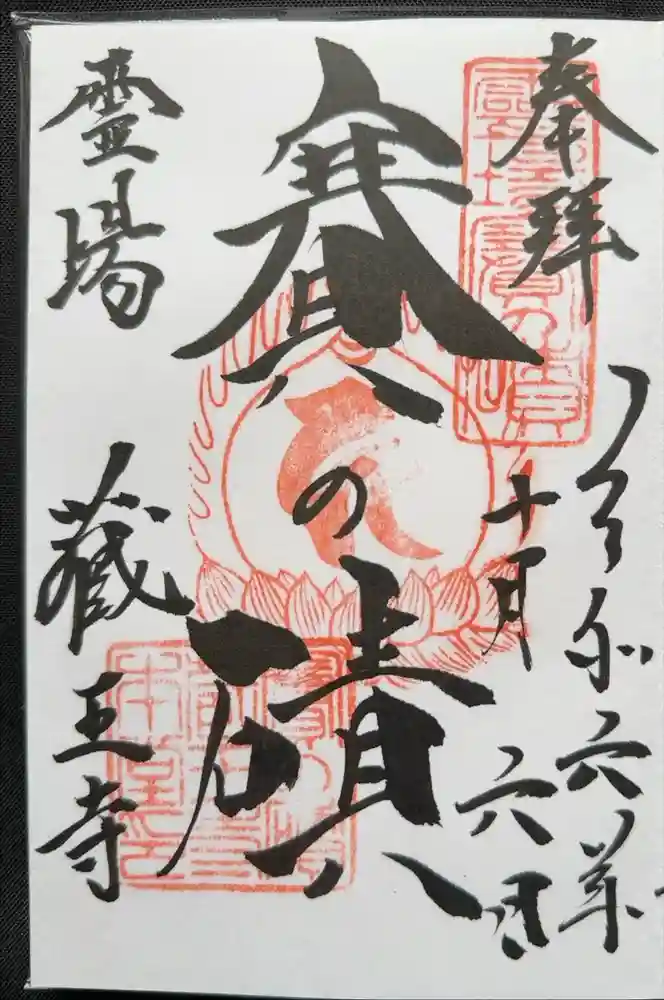 奉拝
令和六年
十月六日
賽の磧
霊場
蔵王寺